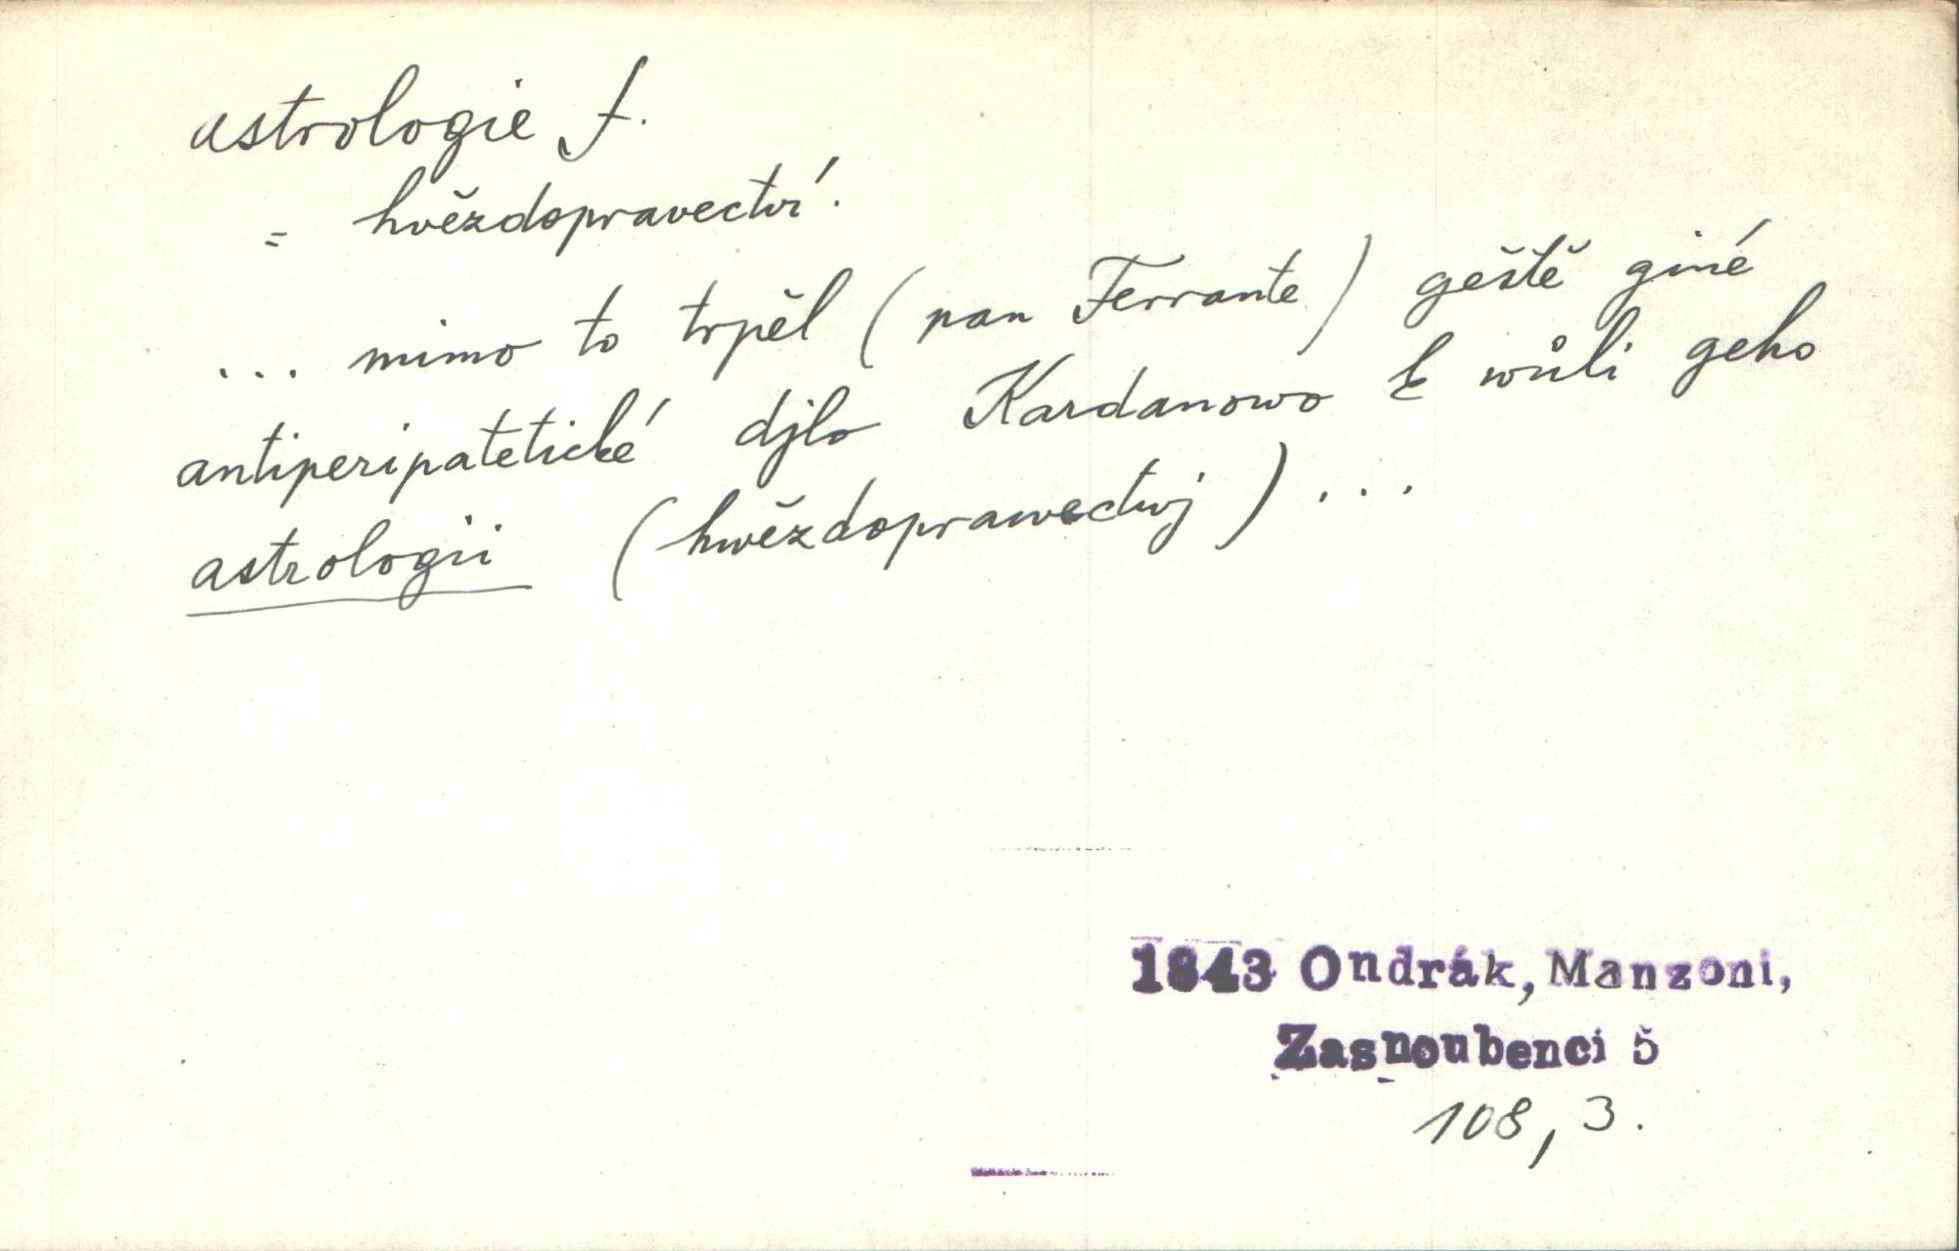 astrologie f.
= hvězdopravectví.
... mimo to trpěl (pan Ferrante) geště giné
antiperipatetické djlo Kardanowo k wůli geho
astrologii (hwězdoprawectwj) ...
1843 Ondrák, Manzoni,
Zasnoubenci 5
108, 3.